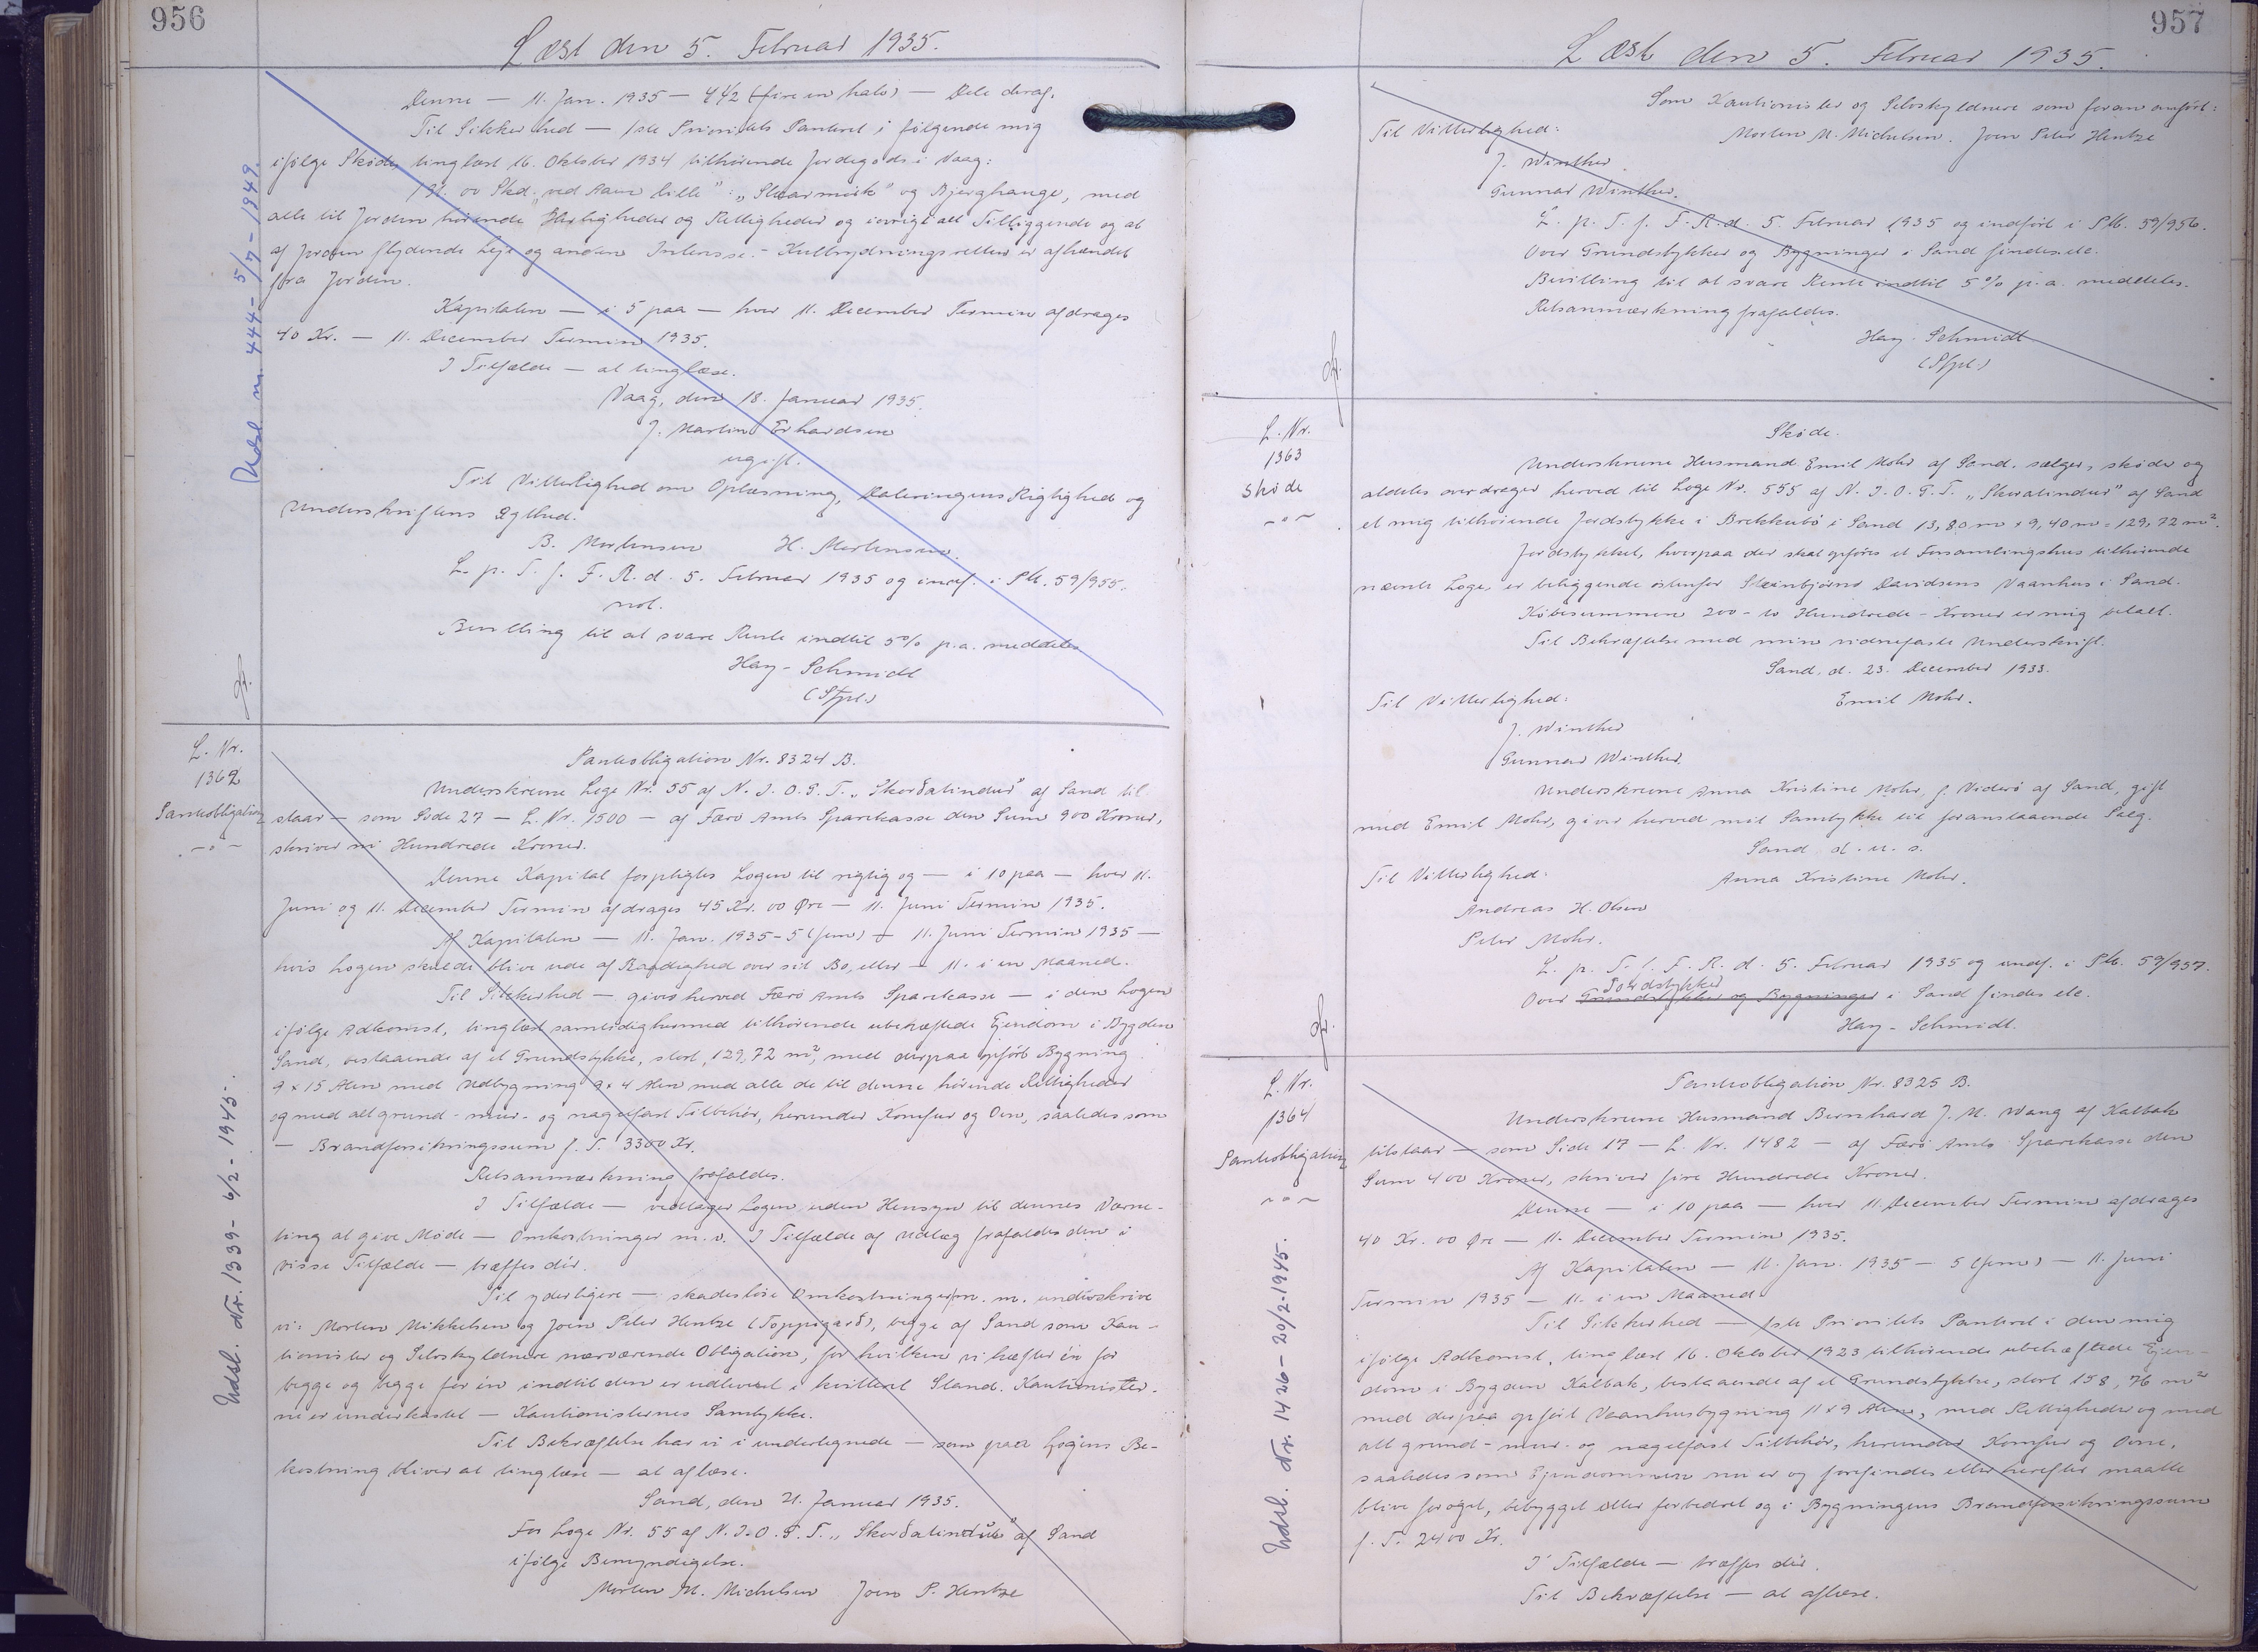 956
Læst den 5. Februar 1935.
Denne — 11. Jan. 1935 — 4 1/2 (fire en halv) — Dele deraf.
Til Sikkerhed — 1ste Prioritets Panteret i følgende mig
ifølge Skøde, tinglæst 16. Oktober 1934 tilhørende Jordegods i Vaag:
00 Skd. ved Aaen lille": „Skarmisk" og Bjerghange, med
alle til Jorden hørende Herligheder og Rettigheder og iøvrigt alt Tilliggende og al
af Jorden flydende Leje og anden Interesse. - Kulbrydningsretten er afhændet
fra Jorden.
Kapitalen — i 5 paa — hver 11. December Termin afdrages
40 Kr. — 11. December Termin 1935.
I Tilfælde — at tinglæse.
Vaag, den 18. Januar 1935.
J. Martin Erhardsen
ugift.
Til Vitterlighed om Oplæsning, Dateringens Rigtighed og
Underskriftens Ægthed.
B. Mortensen H. Mortensen.
L. p. T. f. F. R. d. 5. Februar 1935 og indf. i Ptb. 59/955.
not.
Bevilling til at svare Rente indtil 5% p.a. meddeles
Hay-Schmidt
(Stpl.)
Udsl. nr. 444 - 5/7 - 1949.
L. Nr.
1362
Pantobligation
-"-
Pantobligation Nr. 8324 B.
Underskrevne Loge Nr. 55 af N. I. O. G. T. „Skorðatindur" af Sand til-
staar — som Side 27 — L. Nr. 1500 — af Færø Amts Sparekasse den Sum 900 Kroner,
skriver ni Hundrede Kroner.
Denne Kapital forpligtes Logen til rigtig og — i 10 paa — hver 11.
Juni og 11. December Termin afdrages 45 Kr. 00 Øre — 11. Juni Termin 1935.
Af Kapitalen — 11. Jan. 1935 - 5 (fem) — 11. Juni Termin 1935 —
hvis Logen skulde blive ude af Raadighed over sit Bo, eller — 11. i en Maaned.
Til Sikkerhed — gives herved Færø Amts Sparekasse — i den Logen
ifølge Adkomst, tinglæst samtidig hermed tilhørende ubehæftede Ejendom i Bygden
Sand, bestaaende af et Grundstykke, stort, 129,72 m², med derpaa opført Bygning
9 x 15 Alen med Udbygning 9 x 4 Alen med alle de til denne hørende Rettigheder
og med alt grund- mur- og nagelfast Tilbehør, herunder Komfur og Ovn, saaledes som
— Brandforsikringssum f. T. 3300 Kr.
Retsanmærkning frafaldes.
I Tilfælde — vedtager Logen uden Hensyn til dennes Værne-
ting at give Møde — Omkostninger m. v. I Tilfælde af Udlæg frafaldes den i
visse Tilfælde — træffes dér.
Til yderligere — skadesløse Omkostninger m. m. underskrive
vi: Morten Mikkelsen og Joen Peter Hentze (Toppigarð), begge af Sand som Kau-
tionister og Selvskyldnere nærværende Obligation, for hvilken vi hæfter én for
begge og begge for én indtil den er udleveret i kvitteret Stand. Kautionister-
ne er underkastet — Kautionisternes Samtykke.
Til Bekræftelse har vi i undertegnede — som paa Logens Be-
kostning bliver at tinglæse — at aflæse.
Sand, den 21. Januar 1935.
For Loge Nr. 55 af N. I. O. G. T. „Skorðatindur" af Sand
ifølge Bemyndigelse.
Morten M. Michelsen Joen P. Hentze
Udsl. Nr. 1339 - 6/2 - 1945.
957
Læst den 5. Februar 1935.
Som Kautionister og Selvskyldnere som foran anført:
Til Vitterlighed: Morten M. Michelsen. Joen Peter Hentze
J. Winther
Gunnar Winther.
L. p. T. f. F. R. d. 5. Februar 1935 og indført i Ptb. 59/956.
Over Grundstykker og Bygninger i Sand findes etc.
Bevilling til at svare Rente indtil 5% p.a. meddeles.
Retsanmærkning frafaldes.
Hay-Schmidt
(Stpl.)
L. Nr.
1363
Skøde
-"-
Skøde.
Underskrevne Husmand Emil Mohr af Sand, sælger, skøder og
aldeles overdrager herved til Loge Nr. 555 af N. I. O. G. T. „Skoratindur" af Sand
et mig tilhørende Jordstykke i Brekkubø i Sand 13,80 m x 9,40 m = 129,72 m².
Jordstykket, hvorpaa der skal opføres et Forsamlingshus tilhørende
nævnte Loge, er beliggende østenfor Steinbjørns Davidsens Vaanhus i Sand.
Købesummen 200 - to Hundrede - Kroner er mig betalt.
Til Bekræftelse med min vidnefaste Underskrift.
Sand, d. 23. December 1933.
Til Vitterlighed: Emil Mohr.
J. Winther
Gunnar Winther.
Underskrevne Anna Kristine Mohr, f. Viderø af Sand, gift
med Emil Mohr, giver herved mit Samtykke til foranstaaende Salg.
Sand d. u. s.
Til Vitterlighed: Anna Kristine Mohr.
Andreas H. Olsen
Peter Mohr.
L. p. T. f. F. R. d. 5. Februar 1935 og indf. i Ptb. 59/957.
Jordstykker
Over Grundstykker og Bygninger i Sand findes etc.
Hay-Schmidt.
L. Nr.
1364
Pantobligation
-"-
Pantobligation Nr. 8325 B.
Underskrevne Husmand Bernhard J. M. Wang af Kalbak
tilstaar — som Side 17 — L. Nr. 1482 — af Færø Amts Sparekasse den
Sum 400 Kroner, skriver fire Hundrede Kroner.
Denne — i 10 paa — hver 11. December Termin afdrages
40 Kr. 00 Øre — 11. December Termin 1935.
Af Kapitalen — 11. Jan. 1935 — 5 (fem) — 11. Juni
Termin 1935 — 11. i en Maaned.
Til Sikkerhed — 1ste Prioritets Panteret i den mig
ifølge Adkomst, tinglæst 16. Oktober 1923 tilhørende ubehæftede Ejen-
dom i Bygden Kalbak, bestaaende af et Grundstykke, stort 158,76 m²
med derpaa opført Vaanhusbygning 11 x 9 Alen, med Rettigheder og med
alt grund- mur- og nagelfast Tilbehør, herunder Komfur og Ovne,
saaledes som Ejendommen nu er og forefindes eller herefter maatte
blive forøget, bebygget eller forbedret og i Bygningens Brandforsikringssum
f. T. 2400 Kr.
I Tilfælde — træffes dér.
Til Bekræftelse — at aflæse.
Udsl. Nr. 1426 - 20/2-1945.